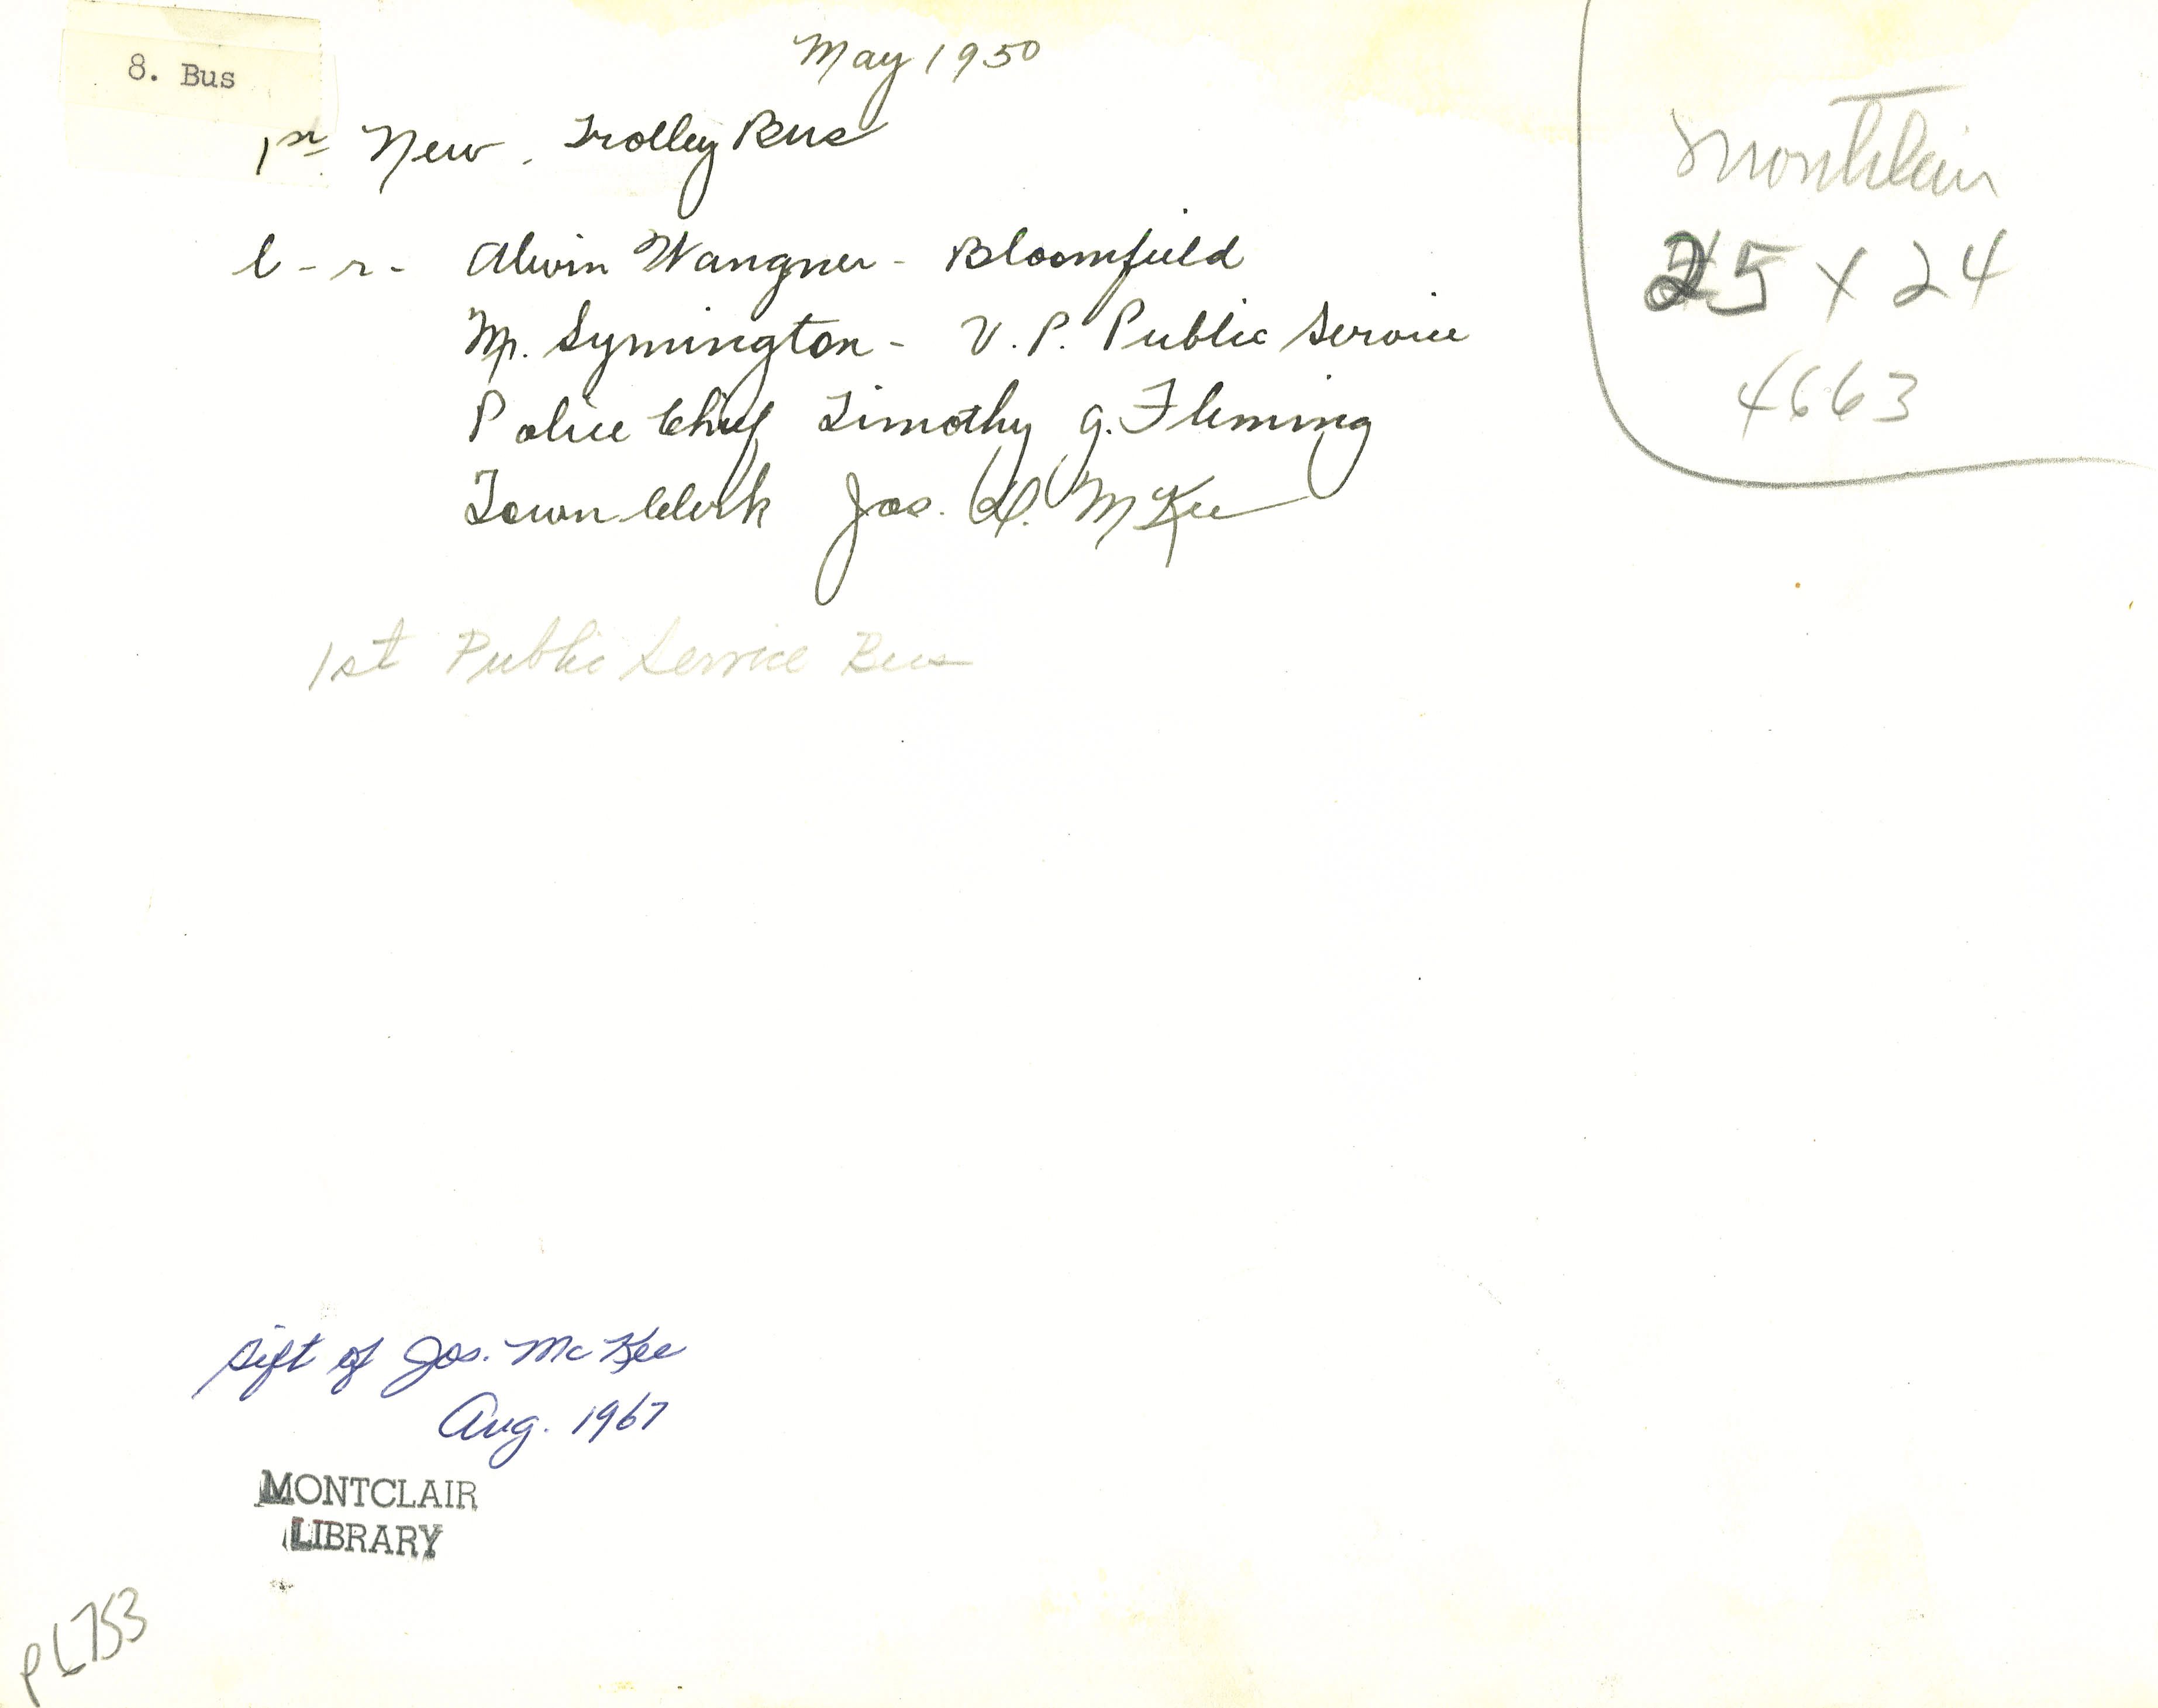 8. Bus
May 1950
1st New Trolley Bus
l-r- Alwin Wangner - Bloomfield
Mr. Symington - V.P. Public Service
Police Chief Timothy G. Fleming
Town Clerk Jos. McKee
1st Public Service Bus
Montclair
25 x 24
4663
Gift of Jos. McKee
Aug. 1967
MONTCLAIR
LIBRARY
PL753